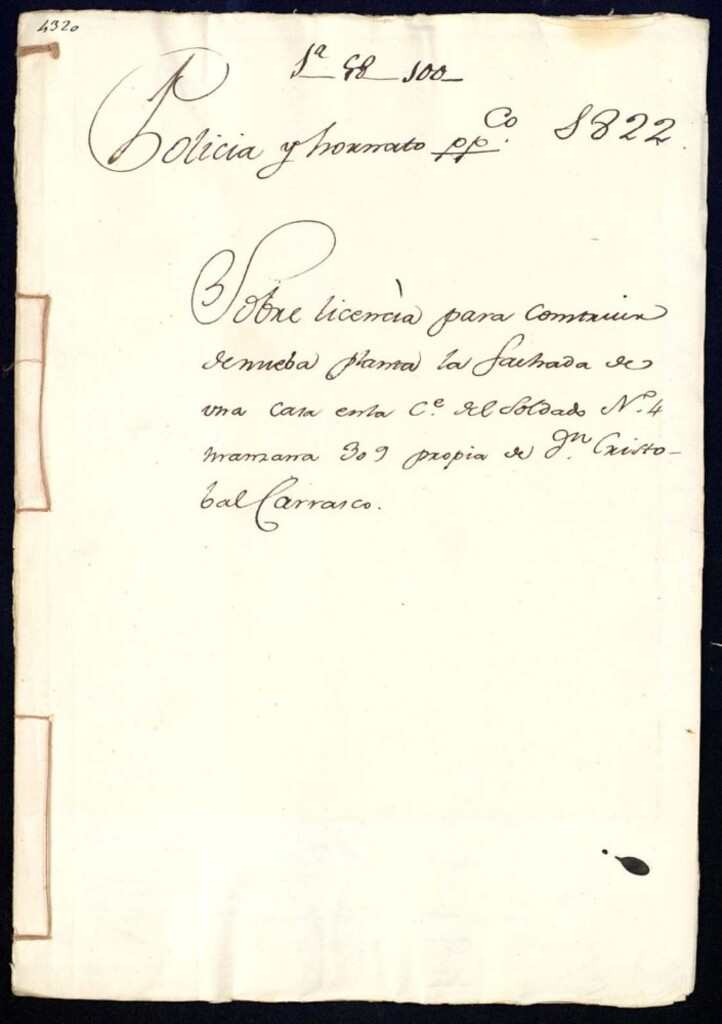 4320
1ª 48 100
Policia y hornato ppCo. 1822.
Sobre licencìa para Construir
denueba planta la fachada de
vna casa enla Ce. del Soldado No. 4
manzana 309 propia de Dn. Cristo-
bal Carrasco.